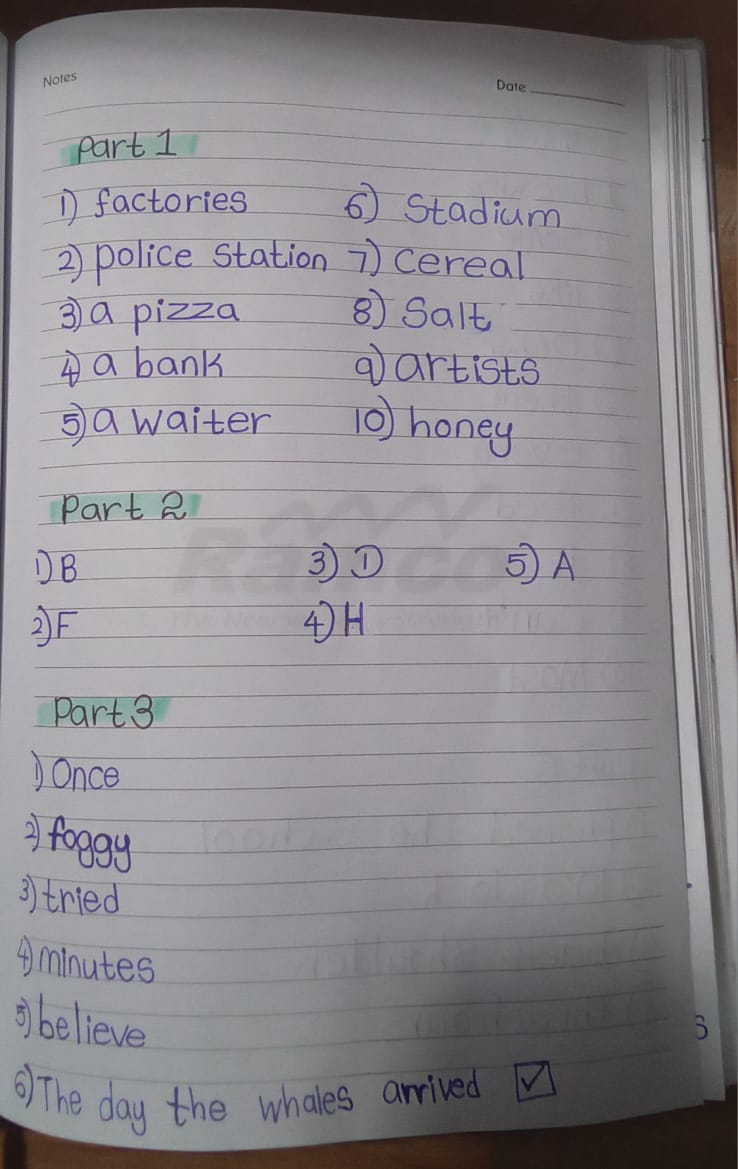 Notes
Date
Part 1
1) factories 6) Stadium
2) police Station 7) cereal
3) a pizza 8) Salt
4) a bank 9) artists
5) a waiter 10) honey
Part 2
1) B 3) D 5) A
2) F 4) H
Part 3
1) Once
2) foggy
3) tried
4) minutes
5) believe
6) The day the whales arrived ☑